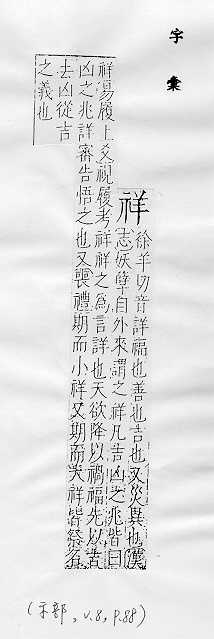 字彙
祥 徐羊切音詳福也善也吉也又災異也漢
志妖孽自外來謂之祥凡吉凶之兆皆曰
祥易履上爻視履考祥祥之爲言詳也天欲降以禍福先以吉
凶之兆詳審告悟之也又喪禮期而小祥又期而大祥皆祭名
去凶從吉
之義也
(示部, v.8, p.88)